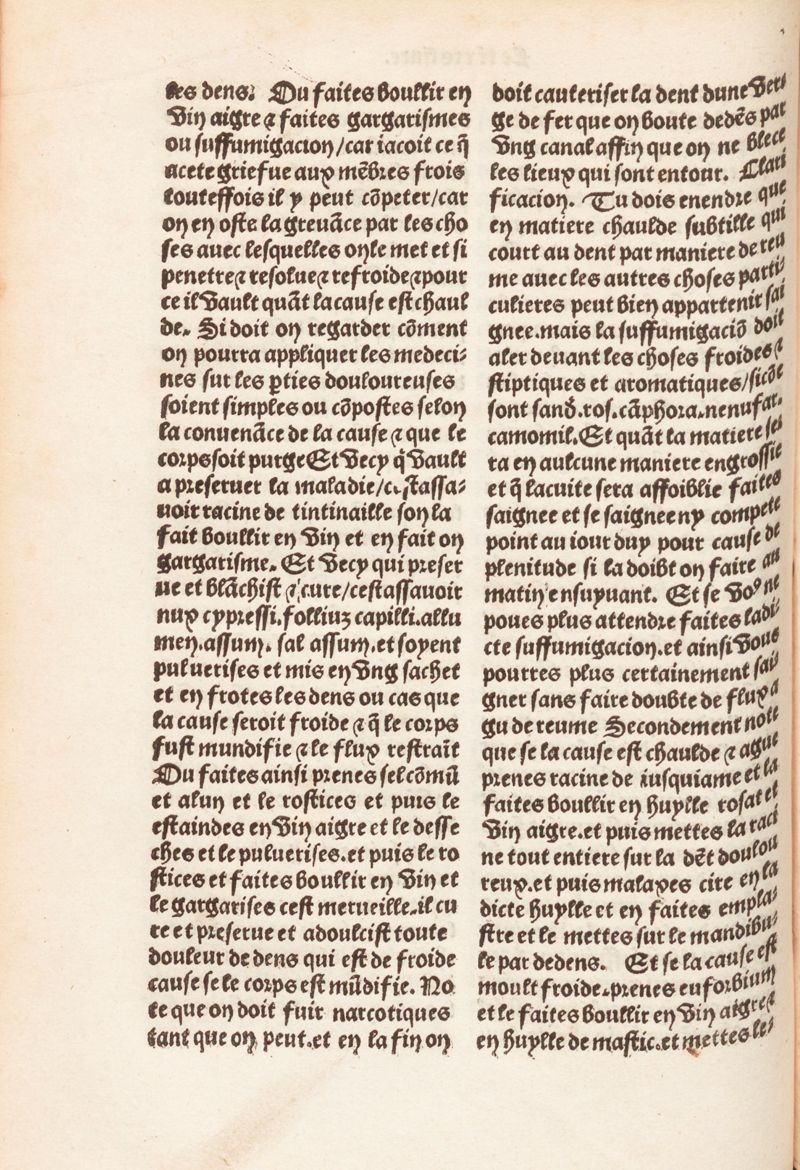 les dens. Ou faites boullir en
vin aigre ⁊ faites gargarismes
ou suffumigacion/car iacoit ce q̄
acete griefue aux mēbres frois
touteffois il y peut cōpeter/car
on en oste la greuāce par les cho
ses auec lesquelles on le met et si
penetre⁊ resolue⁊ refroide⁊pour
ce il vault quāt la cause est chaul
de. Si doit on regarder cōment
on pourra appliquer les medeci-
nes sur les ꝑties douloureuses
soient simples ou cōpostes selon
la conuenāce de la cause ⁊ que le
corps soit purge Et vecy q̄ vault
a preseruer la maladie/cestassa-
uoir racine de tintinaille son la
fait boullir en vin et en fait on
gargarisme. Et vecy qui preser
ue et blāchist ⁊ cure/cestassauoir
nux cypressi.folliuꝫ capilli.allu
men.assum. sal assum.et soyent
puluerises et mis en vng sachet
et en frotes les dens ou cas que
la cause seroit froide ⁊ q̄ le corps
fust mundifie ⁊ le flux restraīt
Ou faites ainsi prenes sel cōmū
et alun et le rostices et puis le
estaindes en vin aigre et le desse
ches et le puluerises.et puis le ro
stices et faites boullir en vin et
le gargarises cest merueille.il cu
re et preserue et adoulcist toute
douleur de dens qui est de froide
cause se le corps est mūdifie. No
te que on doit fuir narcotiques
tant que on peut.et en la fin on
doit cauteriser la dent dune ver-
ge de fer que on boute dedēs par
vng canal affin que on ne blece
les lieux qui sont entour. Clari
ficacion. Tu dois enendre que
en matiere chaulde subtille qui
court au dent par maniere de reu
me auec les autres choses parti-
culieres peut bien appartenir sai
gnee.mais la suffumigaciō doit
aler deuant les choses froides⁊
stiptiques et aromatiques/sicōe
sont sand̄.ros.cāphora.nenufar.
camomil.Et quāt la matiere se-
ra en aulcune maniere engrossie
et q̄ lacuite sera affoiblie faites
saignee et se saignee ny compete
point au iour duy pour cause de
plenitude si la doibt on faire au
matin ensuyuant. Et se voꝰ ne
poues plus attendre faites ladi-
cte suffumigacion.et ainsi vous
pourres plus certainement sai
gner sans faire doubte de flux a
gu de reume Secondement note
que se la cause est chaulde ⁊ ague
prenes racine de iusquiame et la
faites boullir en huylle rosat et
vin aigre.et puis mettes la raci
ne tout entiere sur la dēt doulou
reux.et puis malaxes cire en la
dicte huylle et en faites empla-
stre et le mettes sur le mandibu-
le par dedens. Et se la cause est
moult froide.prenes euforbium
et le faites boullir en vin aigre⁊
en huylle de mastic.et mettes le